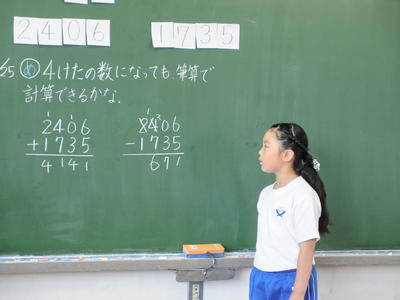 2406 1735
%5 め 4けたの数になっても、筆算で
計算できるかな。
2406
+1735
4141
2406
-1735
671